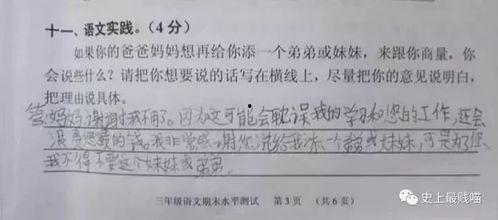 十一、语文实践。（4分）
如果你的爸爸妈妈想再给你添一个弟弟或妹妹，来跟你商量，你
会说些什么？请把你想要说的话写在横线上，尽量把你的意见说明白，
把理由说具体。
答：妈妈谢谢，我不用了。因为文可能会耽误我的学习和您的工作，还会
浪费您的钱。我非常感谢您说给我添一个弟弟或妹妹，可是为了您，
我不得不要这个妹妹或弟弟。
三年级语文期末水平测试 第3页 （共6页）
史上最贱喵